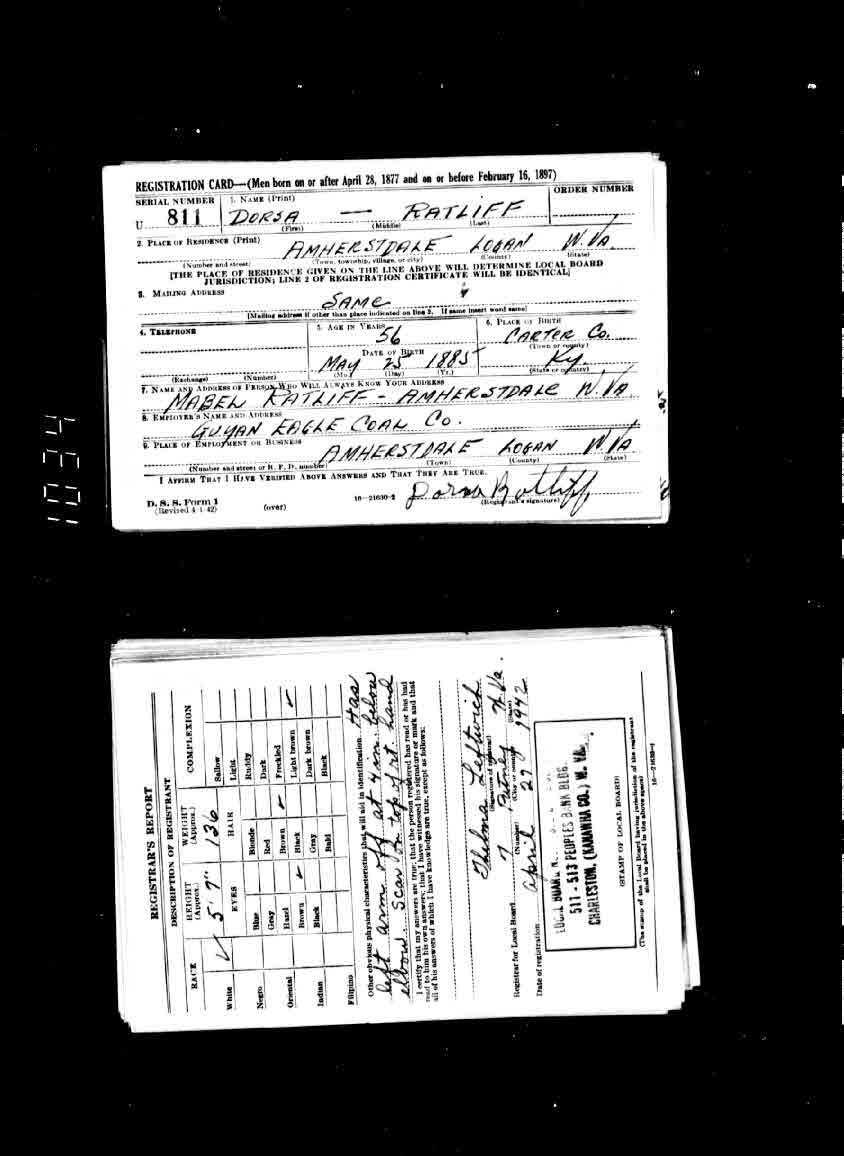 REGISTRATION CARD—(Men born on or after April 28, 1877 and on or before February 16, 1897)
SERIAL NUMBER 1. NAME (Print) ORDER NUMBER
U 811 DORSA — RATLIFF
(First) (Middle) (Last)
2. PLACE OF RESIDENCE (Print)
AMHERSTDALE LOGAN W. VA
(Number and street) (Town, township, village, or city) (County) (State)
[THE PLACE OF RESIDENCE GIVEN ON THE LINE ABOVE WILL DETERMINE LOCAL BOARD
JURISDICTION; LINE 2 OF REGISTRATION CERTIFICATE WILL BE IDENTICAL]
3. MAILING ADDRESS
SAME
[Mailing address if other than place indicated on line 2. If same insert word same]
4. TELEPHONE 5. AGE IN YEARS 6. PLACE OF BIRTH
56 CARTER Co.
DATE OF BIRTH (Town or county)
MAY 25 1885 Ky.
(Exchange) (Number) (Mo.) (Day) (Yr.) (State or country)
7. NAME AND ADDRESS OF PERSON WHO WILL ALWAYS KNOW YOUR ADDRESS
MABEL RATLIFF - AMHERSTDALE W. VA
8. EMPLOYER'S NAME AND ADDRESS
GUYAN EAGLE COAL Co.
9. PLACE OF EMPLOYMENT OR BUSINESS
AMHERSTDALE LOGAN W VA
(Number and street or R. F. D. number) (Town) (County) (State)
I AFFIRM THAT I HAVE VERIFIED ABOVE ANSWERS AND THAT THEY ARE TRUE.
D. S. S. Form 1 16—21630-2 Dorsa Ratliff
(Revised 4-1-42) (over) (Registrant's signature)
1034
REGISTRAR'S REPORT
DESCRIPTION OF REGISTRANT
RACE HEIGHT (Approx.) WEIGHT (Approx.) COMPLEXION
5' 7" 136
White ✓ EYES HAIR Sallow
Light
Negro Blue Blonde Ruddy
Gray Red Dark
Oriental Hazel Brown ✓ Freckled
Brown ✓ Black Light brown ✓
Indian Black Gray Dark brown
Bald Black
Filipino
Other obvious physical characteristics that will aid in identification Has
left arm off at 4 in. below
elbow. Scar on top of rt. hand
I certify that my answers are true; that the person registered has read or has had
read to him his own answers; that I have witnessed his signature or mark and that
all of his answers of which I have knowledge are true, except as follows:
Thelma Leftwich
(Signature of registrar)
Registrar for Local Board 7 W. Va.
(Number) (City or county) (State)
Date of registration April 27 1942
LOCAL BOARD N
511 - 513 PEOPLES BANK BLDG.
CHARLESTON, (KANAWHA CO.) W. VA.
(STAMP OF LOCAL BOARD)
(The stamp of the Local Board having jurisdiction of the registrant
shall be placed in the above space)
16—21630-1